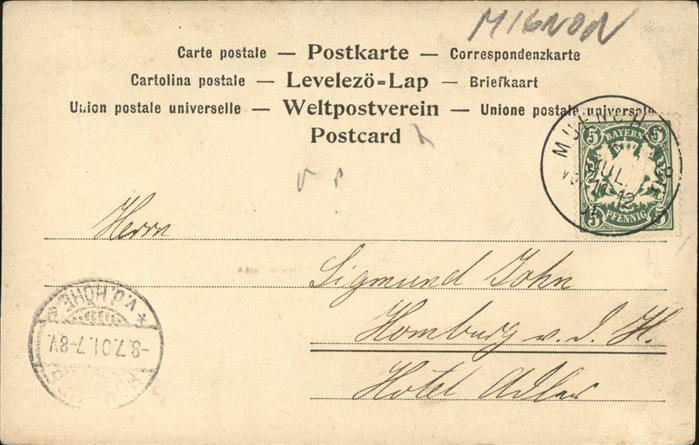 MIGNON
Carte postale — Postkarte — Correspondenzkarte
Cartolina postale — Levelező=Lap — Briefkaart
Union postale universelle — Weltpostverein — Unione postale universale
Postcard
MUENCH
5 BAYERN 5
JUL.
12
5 PFENNIG 5
Herrn
Sigmund John
Homburg v. d. H.
Hotel Adler
V.D. HÖHE
-8.7.01.7-8V.